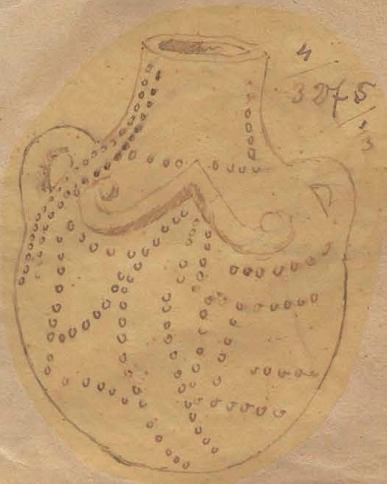 4
3275
1
3